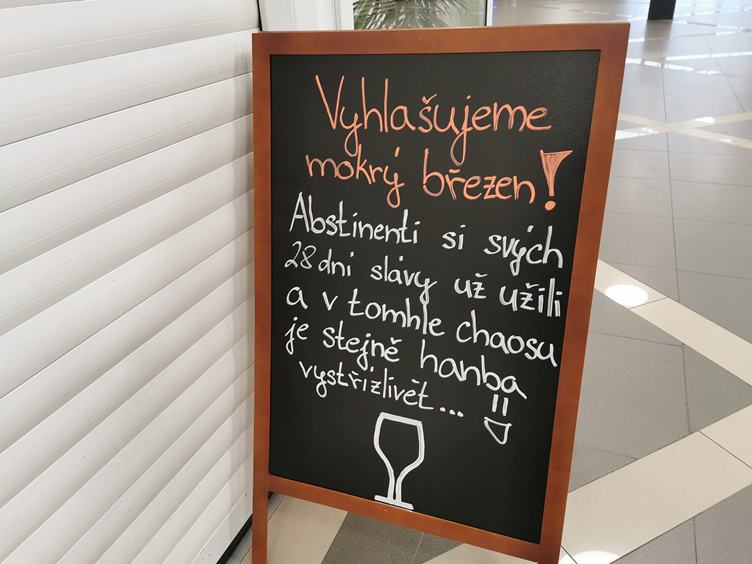 Vyhlašujeme
mokrý březen!
Abstinenti si svých
28 dní slávy už užili
a v tomhle chaosu
je stejně hanba
vystřízlivět...